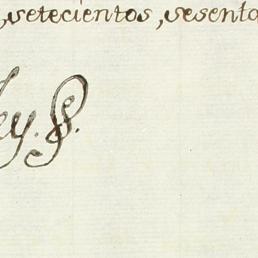 , setecientos, sesenta
ey.